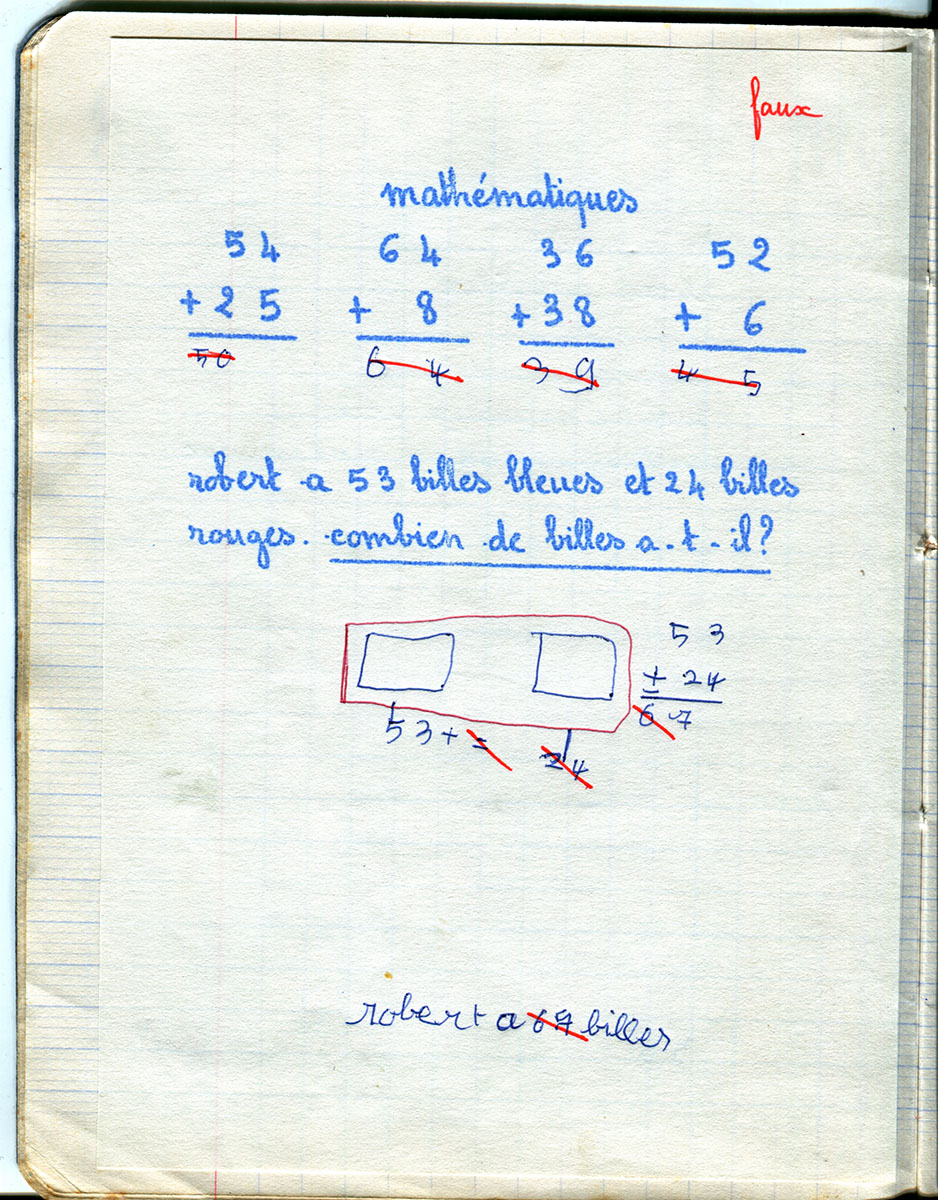 faux
mathématiques
54 64 36 52
+ 25 + 8 + 38 + 6
50 6 4 39 4 5
robert a 53 billes bleues et 24 billes
rouges. combien de billes a-t-il?
53
+ 24
67
53 + = 24
robert a 67 billes